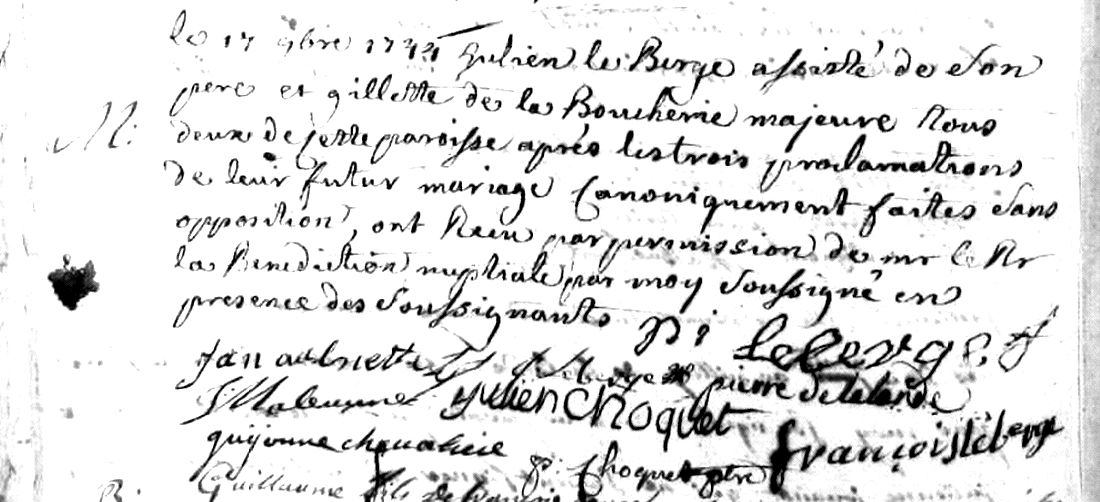 le 17 9bre 1744 Julien le Berge assisté de Son
M: pere et gillette de la Boucherie majeure tous
deux de cette paroisse après les trois proclamations
de leur futur mariage Canoniquement faites Sans
opposition, ont Receu par permission de mr le Rr
la Benediction nuptiale par moy Soussigné en
presence des Soussignants pi leberge
Jan aulnette pierre delalande
Julien Choquet
guyonne chevalier françois leberge
p: Choquet ptre
Guillaume fils de